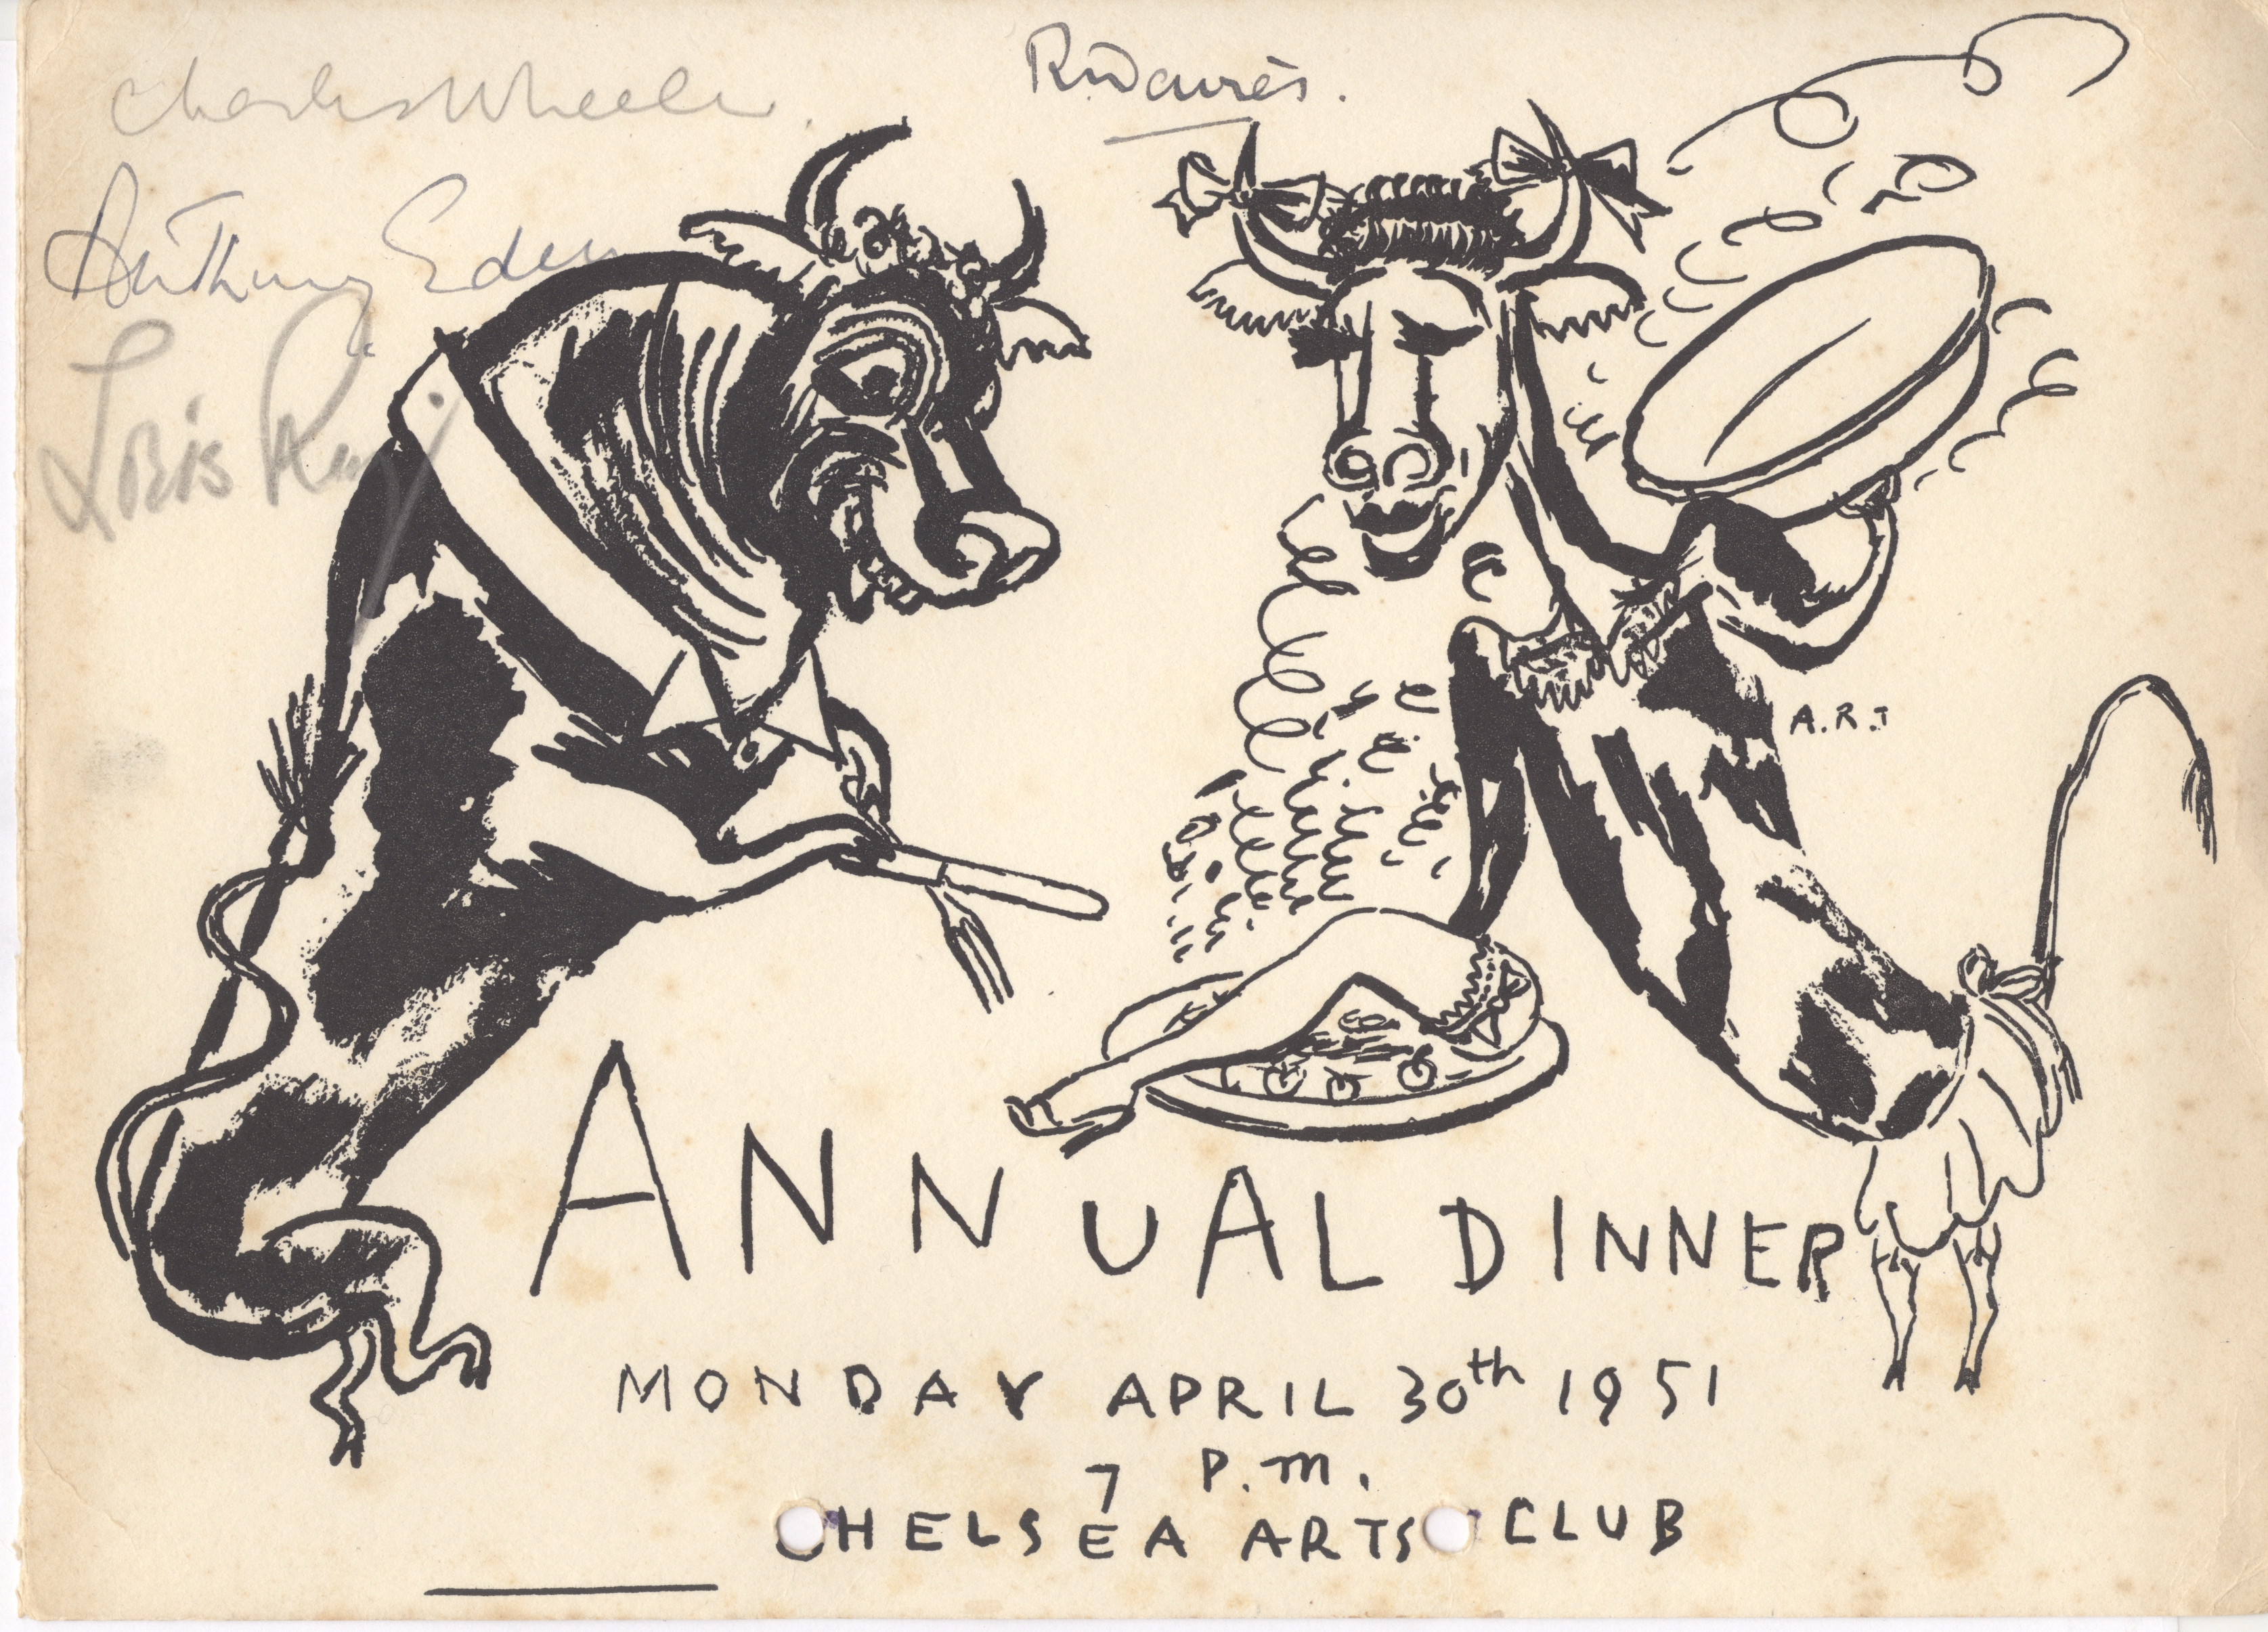 Charles Wheeler.
Anthony Eden
Loris Rey
A.R.T
ANNUAL DINNER
MONDAY APRIL 30th 1951
7 P.M.
CHELSEA ARTS CLUB